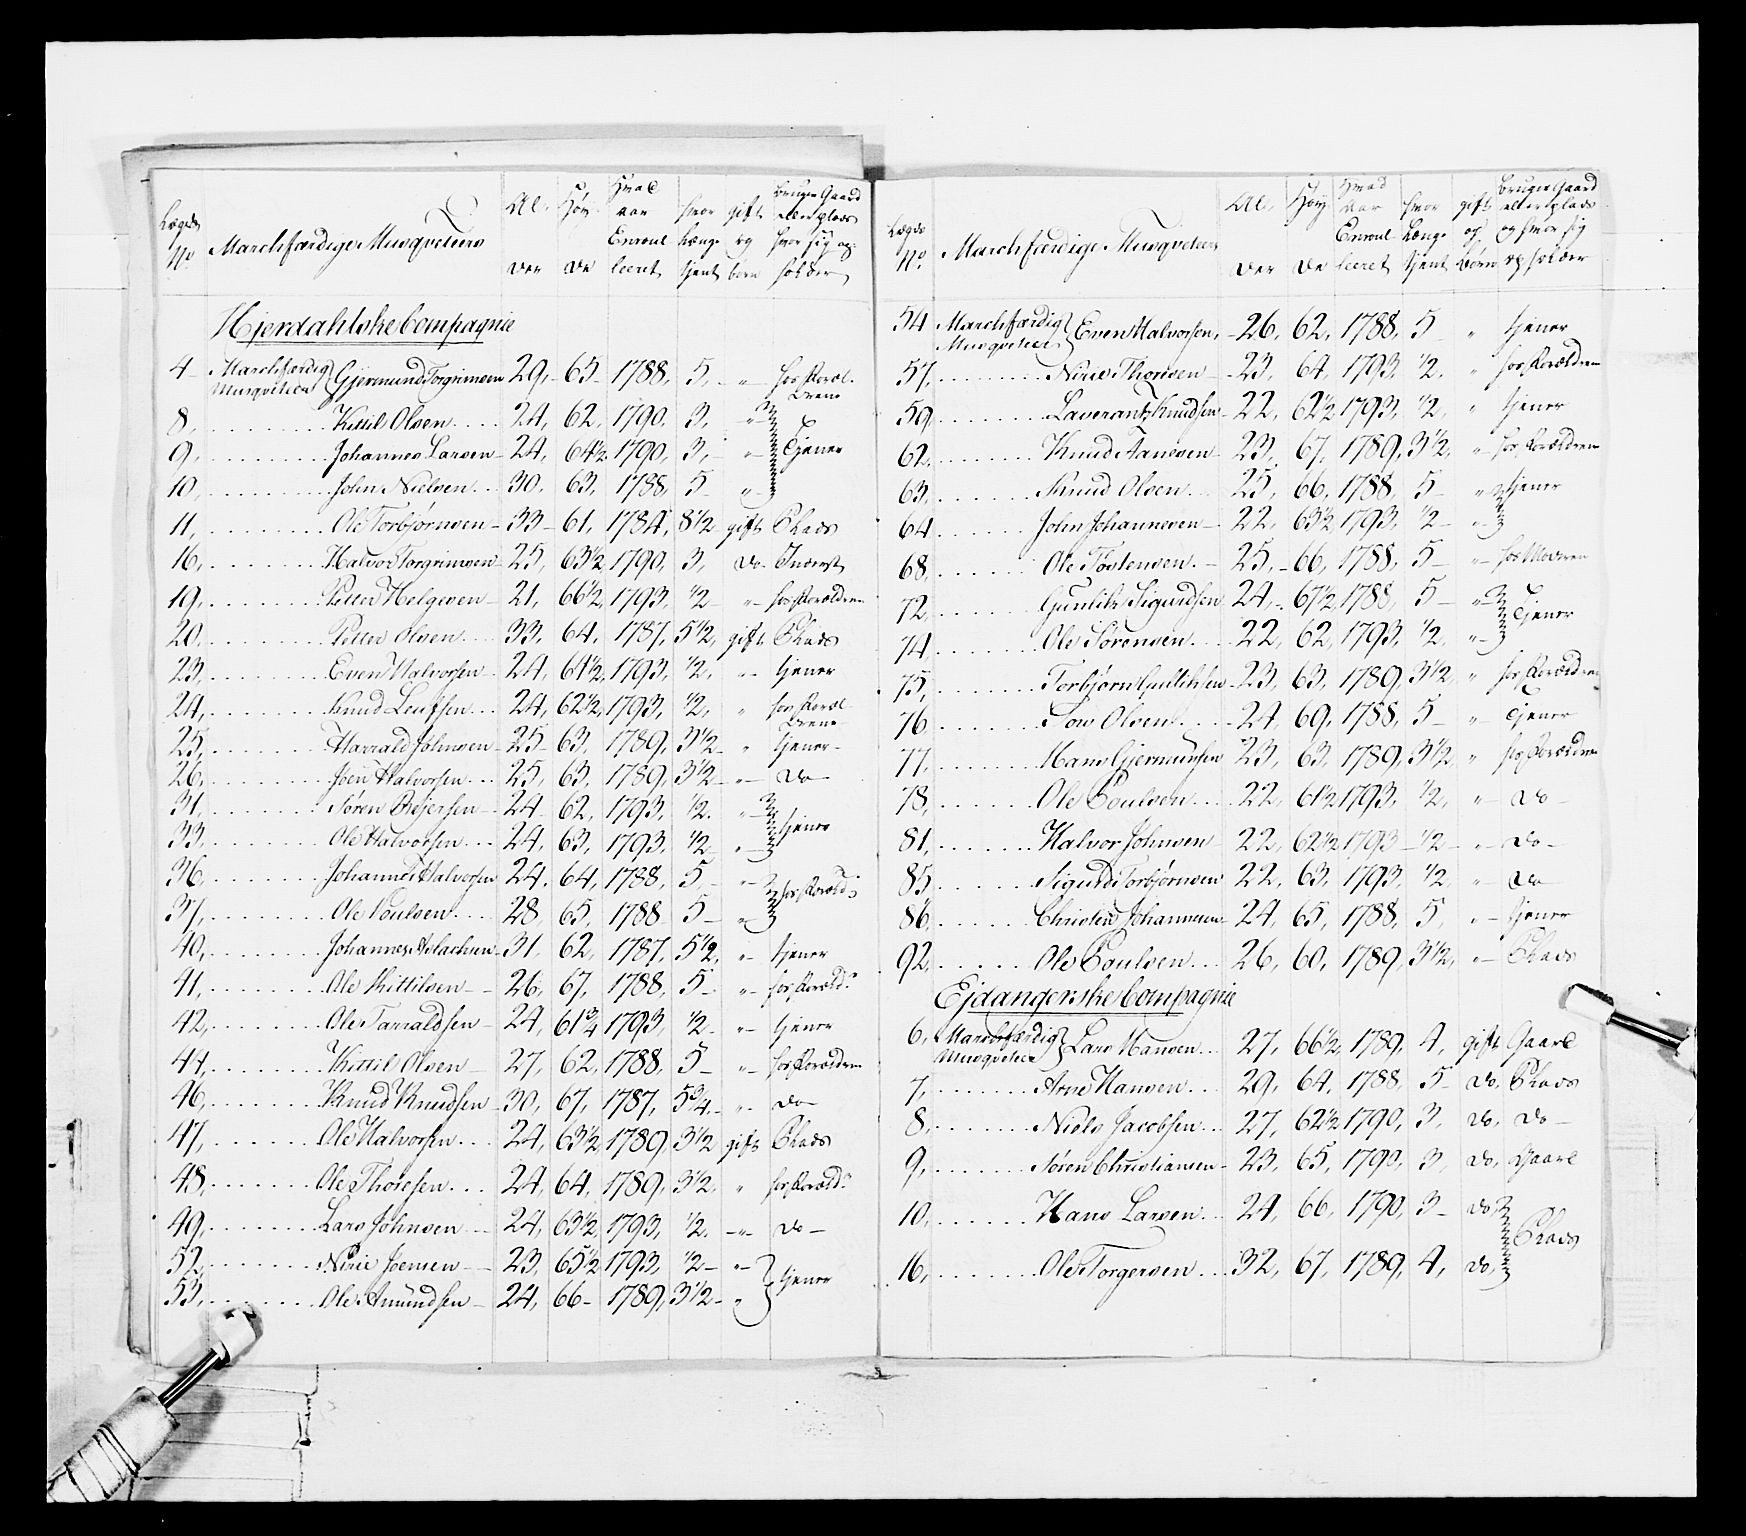 Lægds No | Marchfærdige Musqveteers | Al-der | Høy-de | Hvad aar Enroul-leeret | hvor længe tjent | gift og børn | bruger Gaard eller plads hvor sig op-holder
Hjerdahlske Compagnie
4 Marchfærdig Musqveteer Gjermund Torgrimsen 29, 65 1788, 5, „ hos Foræl-drene
8, Kittil Olsen 24, 62, 1790, 3, „
9, Johannes Larsen 24, 64½ 1790, 3, „ Tjener
10, John Nielsen 30, 63, 1788, 5 „
11, Ole Torbjørnsen 33 61, 1784, 8½ gift Plads
16, Halvor Torgrimsen 25, 63½ 1790, 3, do Inderst
19, Petter Helgesen 21, 66½, 1793, ½ „ hos Forældren
20, Petter Olsen 33, 64, 1787, 5½, gift Plads
23, Even Halvorsen 24, 64½, 1793, ½, „ tjener
24, Knud Leufsen 24, 62½, 1793, ½, „ hos Foræl-drene
25, Harrald Johnsen 25 63, 1789, 3½ „ tjener
26, Joen Halvorsen 25, 63, 1789, 3½ „ do
31, Søren Bejersen 24 62, 1793, ½. „
33, Ole Halvorsen 24, 63, 1793, ½ „ tjener
36, Johannes Halvorsen 24, 64, 1788, 5 „ hos Foræld:
37, Ole Poulsen 28 65, 1788 5 „
40, Johannes Aslachsen 31, 62, 1787, 5½, „ tjener
41, Ole Kittilsen 26, 67, 1788, 5 „ hos Foræld:
42, Ole Tarraldsen 24, 61¾ 1793, ½ „ tjener
44, Kittil Olsen 27, 62, 1788, 5 „ hos Forældren
46, Knud Knudsen 30, 67, 1787, 5¾, „ do
47, Ole Halvorsen 24, 63½, 1789, 3½ gift Plads
48, Ole Thoresen 24, 64, 1789, 3½, „ hos Foræld:
49, Lars Johnsen 24, 63½, 1793, ½, „ do
52, Niric Joensen 23, 65½ 1793, ½ „
53, Ole Amundsen 24, 66 1789, 3½ „ tjener
Lægds No | Marchfærdige Musqveteers | Al-der | Høy-de | Hvad aar Enroul-leeret | hvor længe tjent | gift og børn | bruger Gaard eller plads og hvor sig opholder
54 Marchfærdig Musqveteer Even Halvorsen, 26, 62, 1788, 5 „ tjener
57, Niric Thoresen 23, 64, 1793, ½. „ hos Forældren
59, Laverantz Knudsen 22, 62½ 1793, ½, „ tjener
62, Knud Aanesen 23, 67, 1789, 3½, „ hos Forældren
63, Knud Olsen 25, 66, 1788, 5 „ tjener
64 John Johannesen 22, 63½, 1793, ½ „
68, Ole Tostensen 25, 66, 1788, 5 „ hos Moderen
72, Gunlik Sigurdsen 24, 67½, 1788, 5 „ Tjener
74, Ole Sørensen 22, 62, 1793, ½, „
75, Torbjørn Gunliksen 23, 63, 1789, 3½, „ hos Forældren
76, Sow Olsen 24, 69, 1788, 5 „ Tjener
77, Hans Gjermundsen 23, 63, 1789, 3½, „ hos Forældren
78, Ole Poulsen 22, 61½ 1793, ½, „ do
81, Halvor Johnsen 22, 62½ 1793 ½ „ do
85, Sigurd Torbjørnsen 22, 63, 1793, ½, „ do
86, Christen Johannesen 24, 65, 1788, 5, „ tjener
92, Ole Poulsen 26, 60, 1789, 3½, „ Plads
Ejdangerske Compagnie
6, Marchfærdig Musqveteer Lars Hansen 27, 66½, 1789, 4, gift Gaard
7, Arne Hansen 29, 64, 1788, 5 do, Plads
8, Niels Jacobsen 27, 62½ 1790, 3, do, do
9, Søren Christiansen 23, 65, 1790, 3, do, Gaard
10, Hans Larsen 24, 66, 1790, 3 do
16, Ole Torgersen 32, 67, 1789, 4, do, Plads